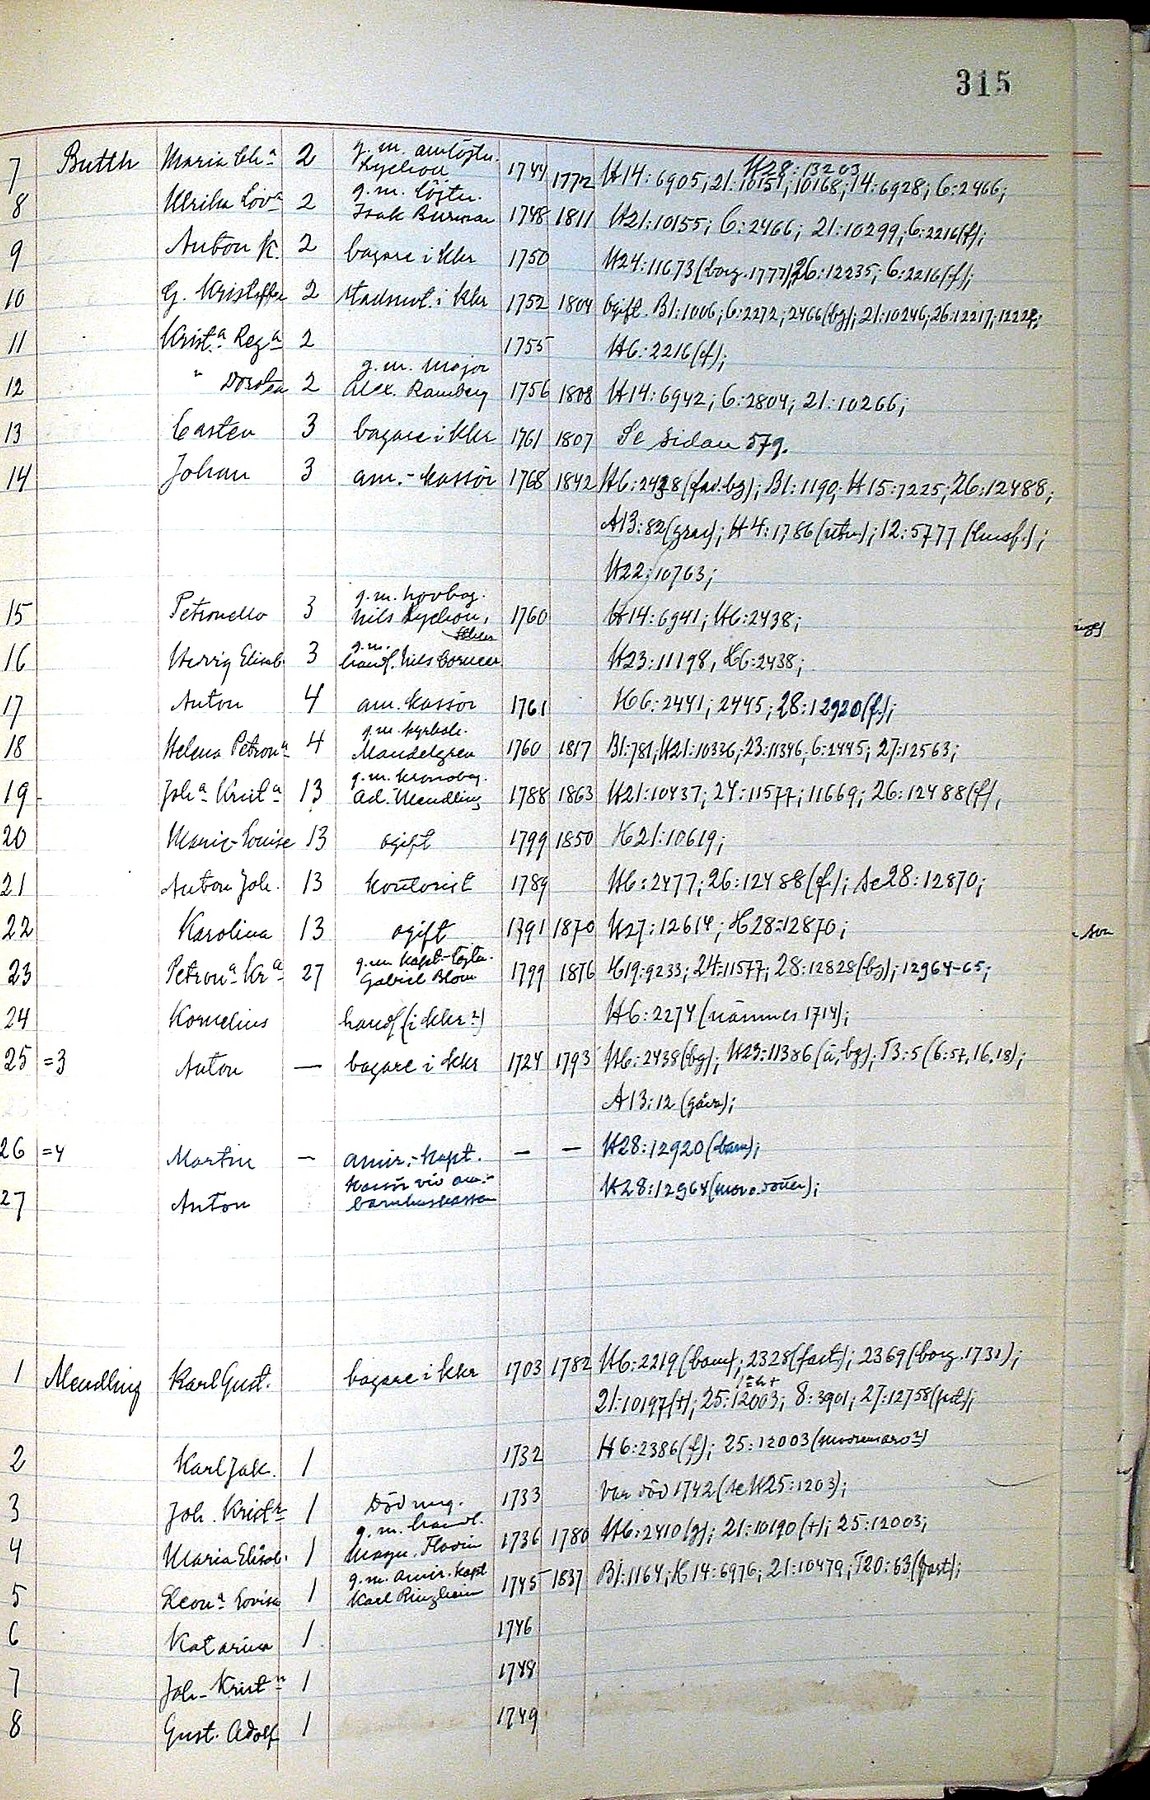 315
7 Butth Maria Ch:a 2 g. m. amlöjtn. Lychou 1744 1772 H14: 6905; 21: 10151; 10168; 14: 6928; 6: 2466; H28: 13203
8 Ulrika Lov:a 2 g. m. löjtn. Isak Burman 1748 1811 H21: 10155; 6: 2466; 21: 10299; 6: 2216(f);
9 Anton K. 2 bagare i Kkr 1750 H24: 11673 (borg. 1777); 26: 12235; 6: 2216(f);
10 G. Kristoffer 2 stadsnot. i Kkr 1752 1804 Ogift. B1: 1006; 6: 2272; 2466(bg); 21: 10246; 26: 12217; 12228;
11 Krist:a Reg:a 2 1755 H6: 2216(f);
12 " Dorotea 2 g. m. major Alex. Ramberg 1756 1808 H14: 6942; 6: 2804; 21: 10266;
13 Casten 3 bagare i Kkr 1761 1807 Se sidan 579.
14 Johan 3 am.-kassör 1768 1842 H6: 2438 (fad. bg); B1: 1190; H15: 7225; 26: 12488;
A13: 82 (grav); H4: 1786 (utn); 12: 5777
H22: 10763;
15 Petronella 3 g. m. hovbag. Nils Lychou, 1760 H14: 6941; H6: 2438;
16 Hedvig Elisab. 3 g. m. handl. Nils Corneer H23: 11198, H6: 2438;
17 Anton 4 am. kassör 1761 H6: 2441; 2445; 28: 12920 (f);
18 Helena Petron:a 4 g. m. kyrkoh. Mandelgren 1760 1817 B1: 781; H21: 10336; 23: 11346; 6: 2445; 27: 12563;
19 Joh:a Krist:a 13 g. m. kronobag. Ad. Mendling 1788 1863 H21: 10437; 24: 11577; 11669; 26: 12488(f),
20 Marie-Louise 13 ogift 1799 1850 H21: 10619;
21 Anton Joh. 13 kontorist 1789 H6: 2477; 26: 12488(f); se 28: 12870;
22 Karolina 13 ogift 1791 1870 H27: 12614; H28: 12870;
23 Petron:a Kr:a 27 g. m. kapt.-löjtn. Gabriel Blom 1799 1876 H19: 9233; 24: 11577; 28: 12828 (bg); 12964-65;
24 Kornelius handl. (i Kkr?) H6: 2274 (nämnes 1714);
25 =3 Anton — bagare i Kkr 1724 1793 H6: 2438(bg); H23: 11386 (ä, bg); T3: 5 (6: 57, 16, 18);
A13: 12 (gåva);
26 =4 Martin — amir.-kapt. — — H28: 12920 (barn);
27 Anton kassör vid am:- barnhuskassan H28: 12964 (mor o. dotter);
1 Mendling Karl Gust. bagare i Kkr 1703 1782 H6: 2219 (barn); 2328 (fast); 2369 (borg. 1731);
21: 10197(+); 25: 12003; 8: 3901; 27: 12758
2 Karl Jak. 1 1732 H6: 2386 (f); 25: 12003
3 Joh. Krist:n 1 Död ung. 1733 Var död 1742 (se H25: 1203);
4 Maria Elisab. 1 g. m. handl. Magn. Flodin 1736 1780 H6: 2410(g); 21: 10190 (+); 25: 12003;
5 Leon:a Lovisa 1 g. m. amir. kapt Karl Ringheim 1745 1837 B1: 1164; H14: 6976; 21: 10479; T20: 63 (fast);
6 Katarina 1 1746
7 Joh-Krist:n 1 1748
8 Gust. Adolf 1 1749